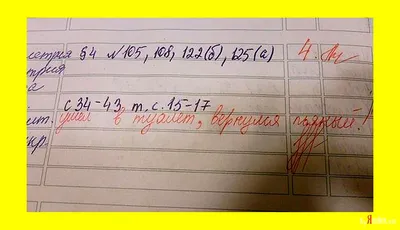 метрия §4 №105, 108, 122(б), 125(а) 4.
трия
а
с 34-43, т.с. 15-17
ушел в туалет, вернулся пьяный!